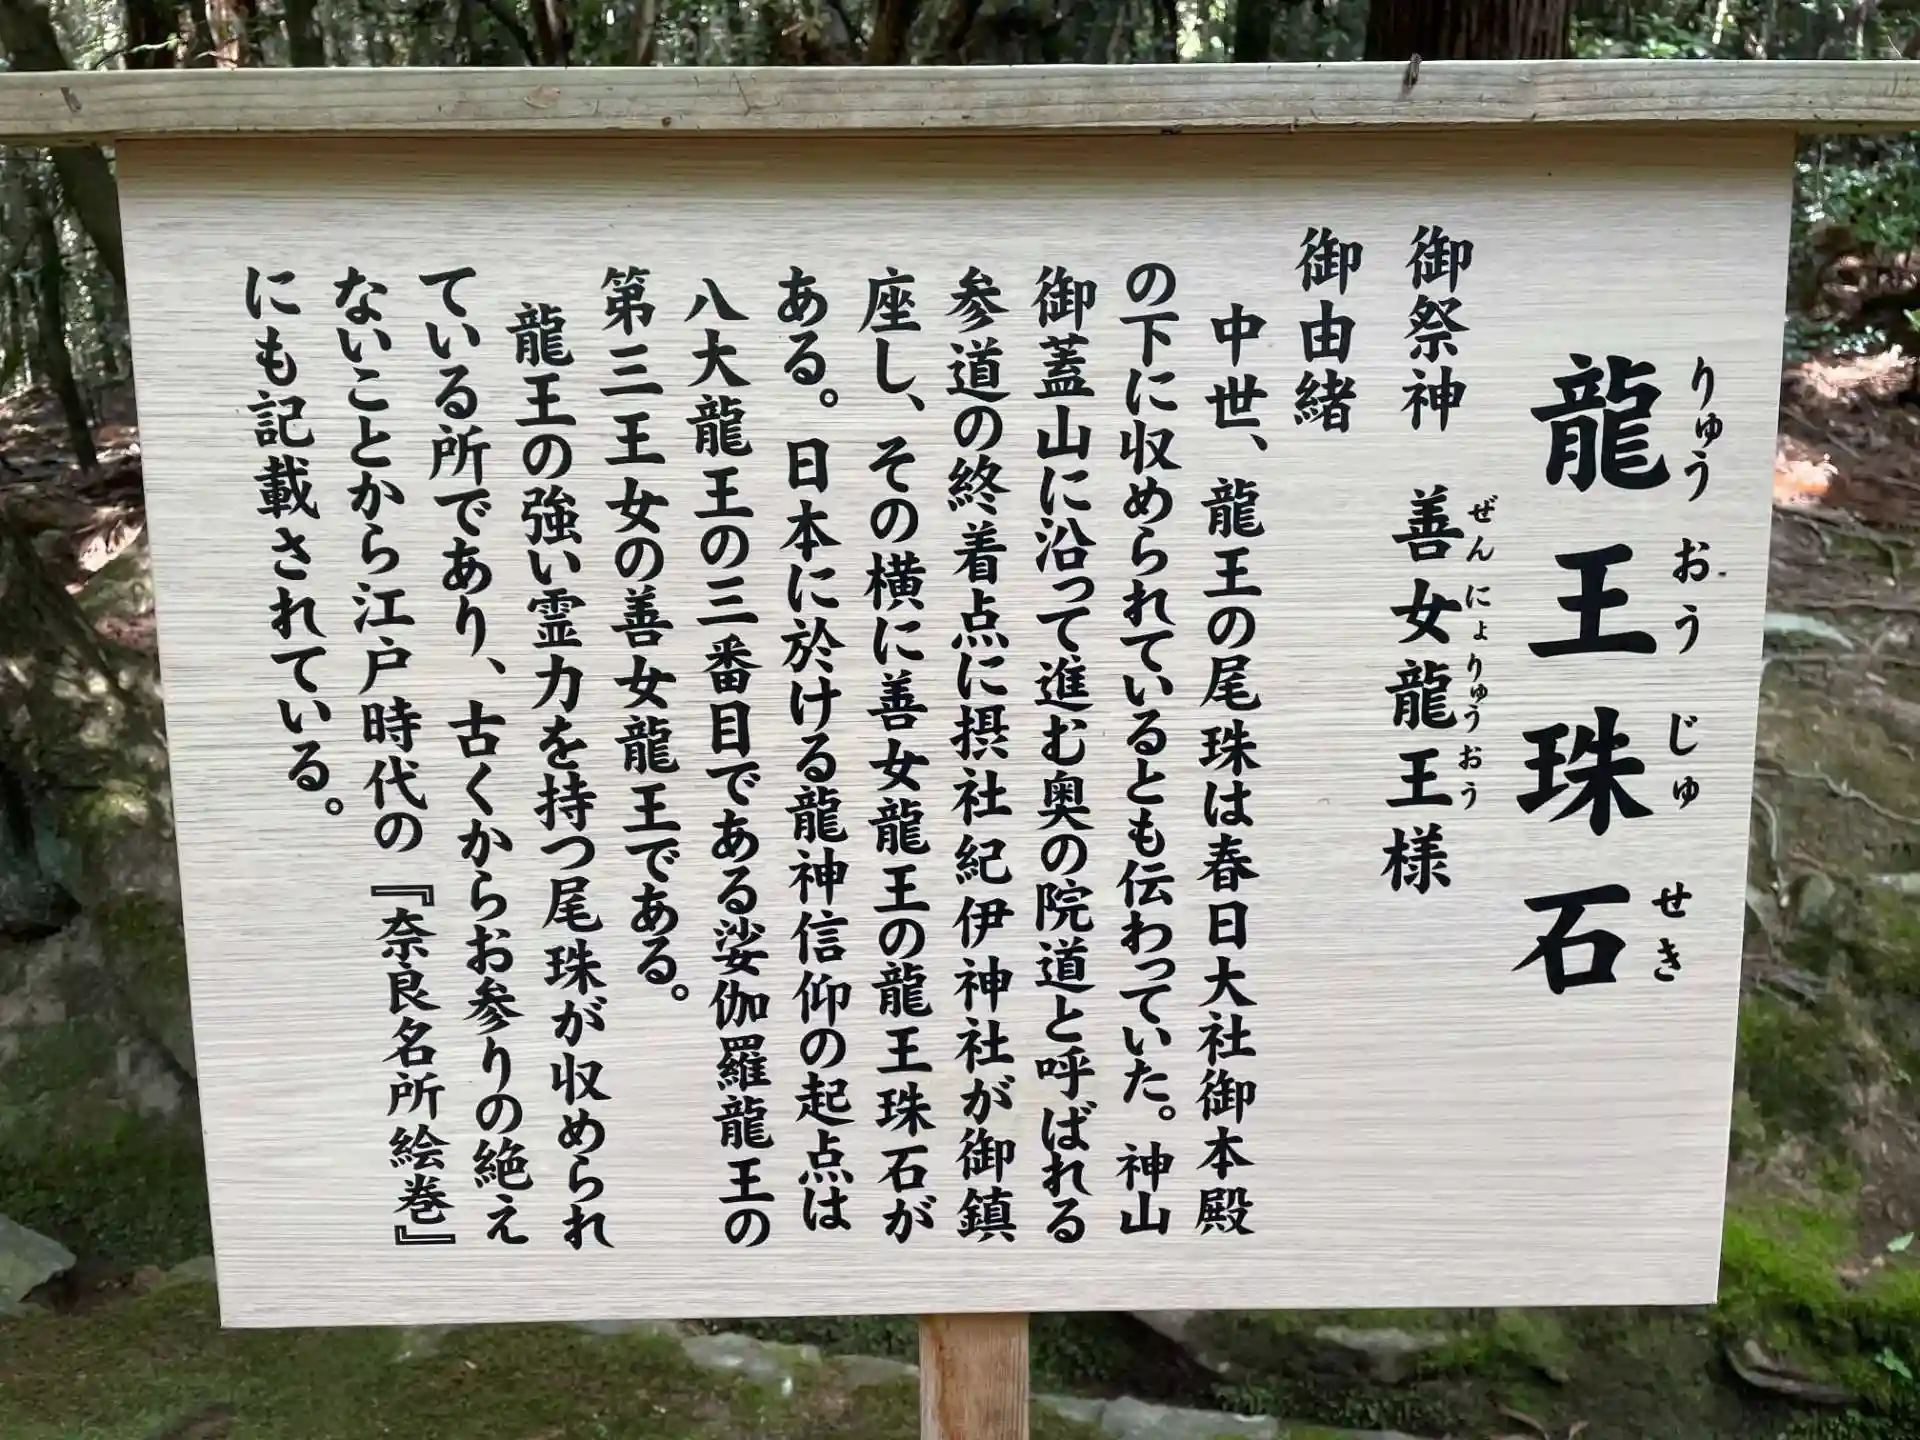 龍王珠石
りゅうおうじゅせき
御祭神 善女龍王様
ぜんにょりゅうおう
御由緒
中世、龍王の尾珠は春日大社御本殿
の下に収められているとも伝わっていた。神山
御蓋山に沿って進む奥の院道と呼ばれる
参道の終着点に摂社紀伊神社が御鎮
座し、その横に善女龍王の龍王珠石が
ある。日本に於ける龍神信仰の起点は
八大龍王の三番目である娑伽羅龍王の
第三王女の善女龍王である。
龍王の強い霊力を持つ尾珠が収められ
ている所であり、古くからお参りの絶え
ないことから江戸時代の『奈良名所絵巻』
にも記載されている。